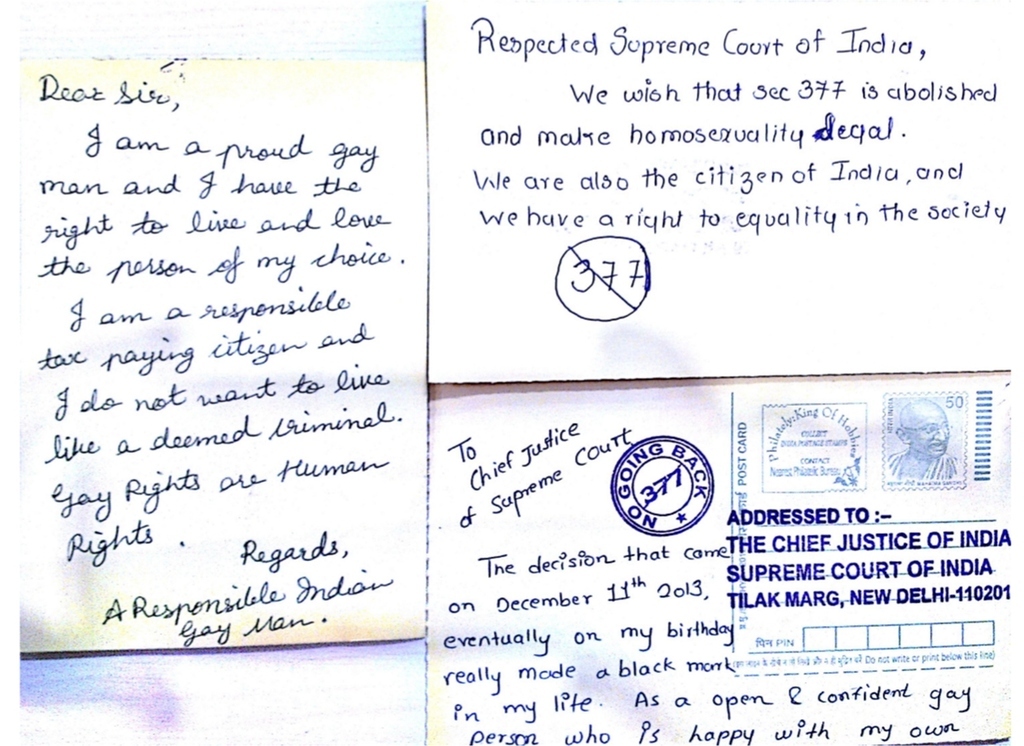 Dear Sir,
I am a proud gay
man and I have the
right to live and love
the person of my choice.
I am a responsible
tax paying citizen and
I do not want to live
like a deemed criminal.
Gay Rights are Human
Rights.
Regards,
A Responsible Indian
Gay Man.
Respected Supreme Court of India,
We wish that sec 377 is abolished
and make homosexuality legal.
We are also the citizen of India, and
We have a right to equality in the society
377
To
Chief Justice
of Supreme Court
NO GOING BACK
377
The decision that came
on December 11th 2013,
eventually on my birthday
really made a black mark
in my life. As a open & confident gay
person who is happy with my own
POST CARD
Philately: King Of Hobbies
COLLECT
INDIA POSTAGE STAMPS
CONTACT
Nearest Philatelic Bureau
50
ADDRESSED TO :-
THE CHIEF JUSTICE OF INDIA
SUPREME COURT OF INDIA
TILAK MARG, NEW DELHI-110201
पिन PIN
(इस लाइन के नीचे न लिखें और न ही मुद्रित करें Do not write or print below this line)